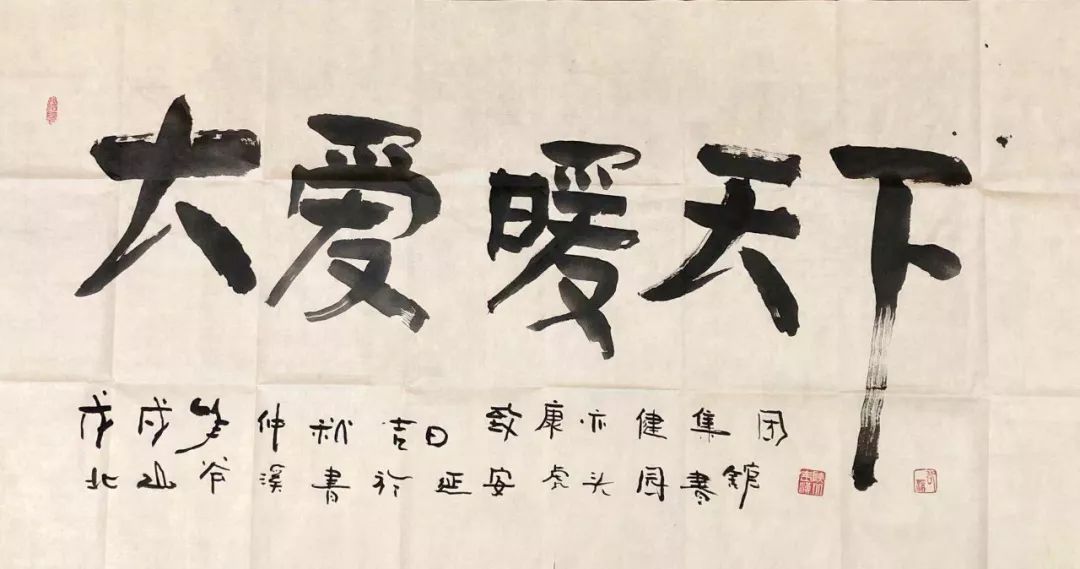 大爱暖天下
戊戌年仲秋吉日致康亦健集团
北山溪書於延安虎头园書館